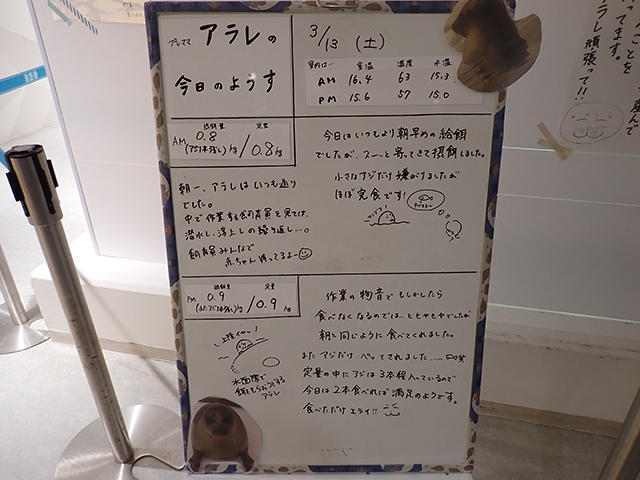 プレママ アラレの
今日のようす
3/13 (土)
室内は… 室温 湿度 水温
AM 16.4 63 15.3
PM 15.6 57 15.0
摂餌量 定量
AM 0.8 kg / 0.8 kg
今日はいつもより朝早めの給餌
でしたが、スーッと寄ってきて摂餌しました。
小さなアジだけ嫌がりましたが
ほぼ完食です!
朝一、アラレはいつも通り
でした。
中で作業する飼育員を見ては、
潜水し、浮上しの繰り返し…。
飼育員みんなで
赤ちゃん待ってるよー
摂餌量 定量
PM 0.9 kg / 0.9 kg
作業の物音でもしかしたら
食べなくなるのでは…とヒヤヒヤでしたが
朝と同じように食べてくれました。
またアジだけペッてされました……
定量の中にアジは3本程入っているので
今日は2本食べれば満足のようです。
食べただけエライ!!
上陸イヤー!
水面際で
餌をもらおうとする
アラレ
ことを
ってます。
ラレ頑張って!!